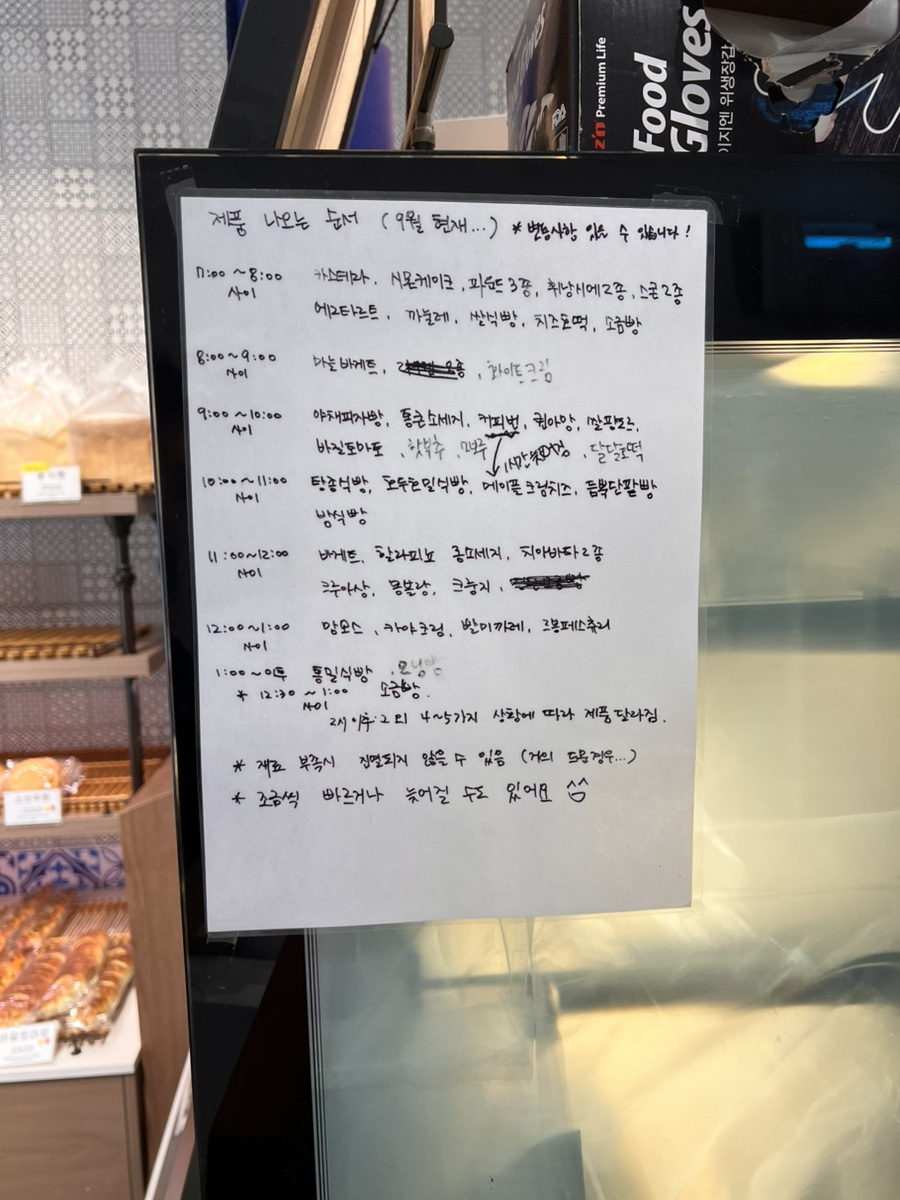 z'n Premium Life
Food
Gloves
이지엔 위생장갑
제품 나오는 순서 (9월 현재...) * 변동사항 있을 수 있습니다!
7:00 ~ 8:00 카스테라, 시폰케이크, 파운드 3종, 휘낭시에 2종, 스콘 2종
사이 에그타르트, 까눌레, 쌀식빵, 치즈호떡, 소금빵
8:00 ~ 9:00 마늘바게트, 화이트크림
사이
9:00 ~ 10:00 야채피자빵, 통큰소세지, 커피번, 퀸아망, 깔팡도르,
사이 바질토마토, 핫부추, 1시간 , 달달호떡
10:00 ~ 11:00 탕종식빵, 호두호밀식빵, 메이플크림치즈, 듬뿍단팥빵
사이 밤식빵
11:00 ~ 12:00 바게트, 할라피뇨 롱소세지, 치아바타 2종
사이 크루아상, 몽블랑, 크룽지,
12:00 ~ 1:00 맘모스, 카야크림, 발미까레, 크봉페스츄리
사이
1:00 ~ 이후 통밀식빵, 모닝빵
* 12:30 ~ 1:00 소금빵.
사이
2시 이후 그 외 4~5가지 상황에 따라 제품 달라짐.
* 재료 부족시 진열되지 않을 수 있음 (거의 드문경우...)
* 조금씩 빠르거나 늦어질 수도 있어요 ^^